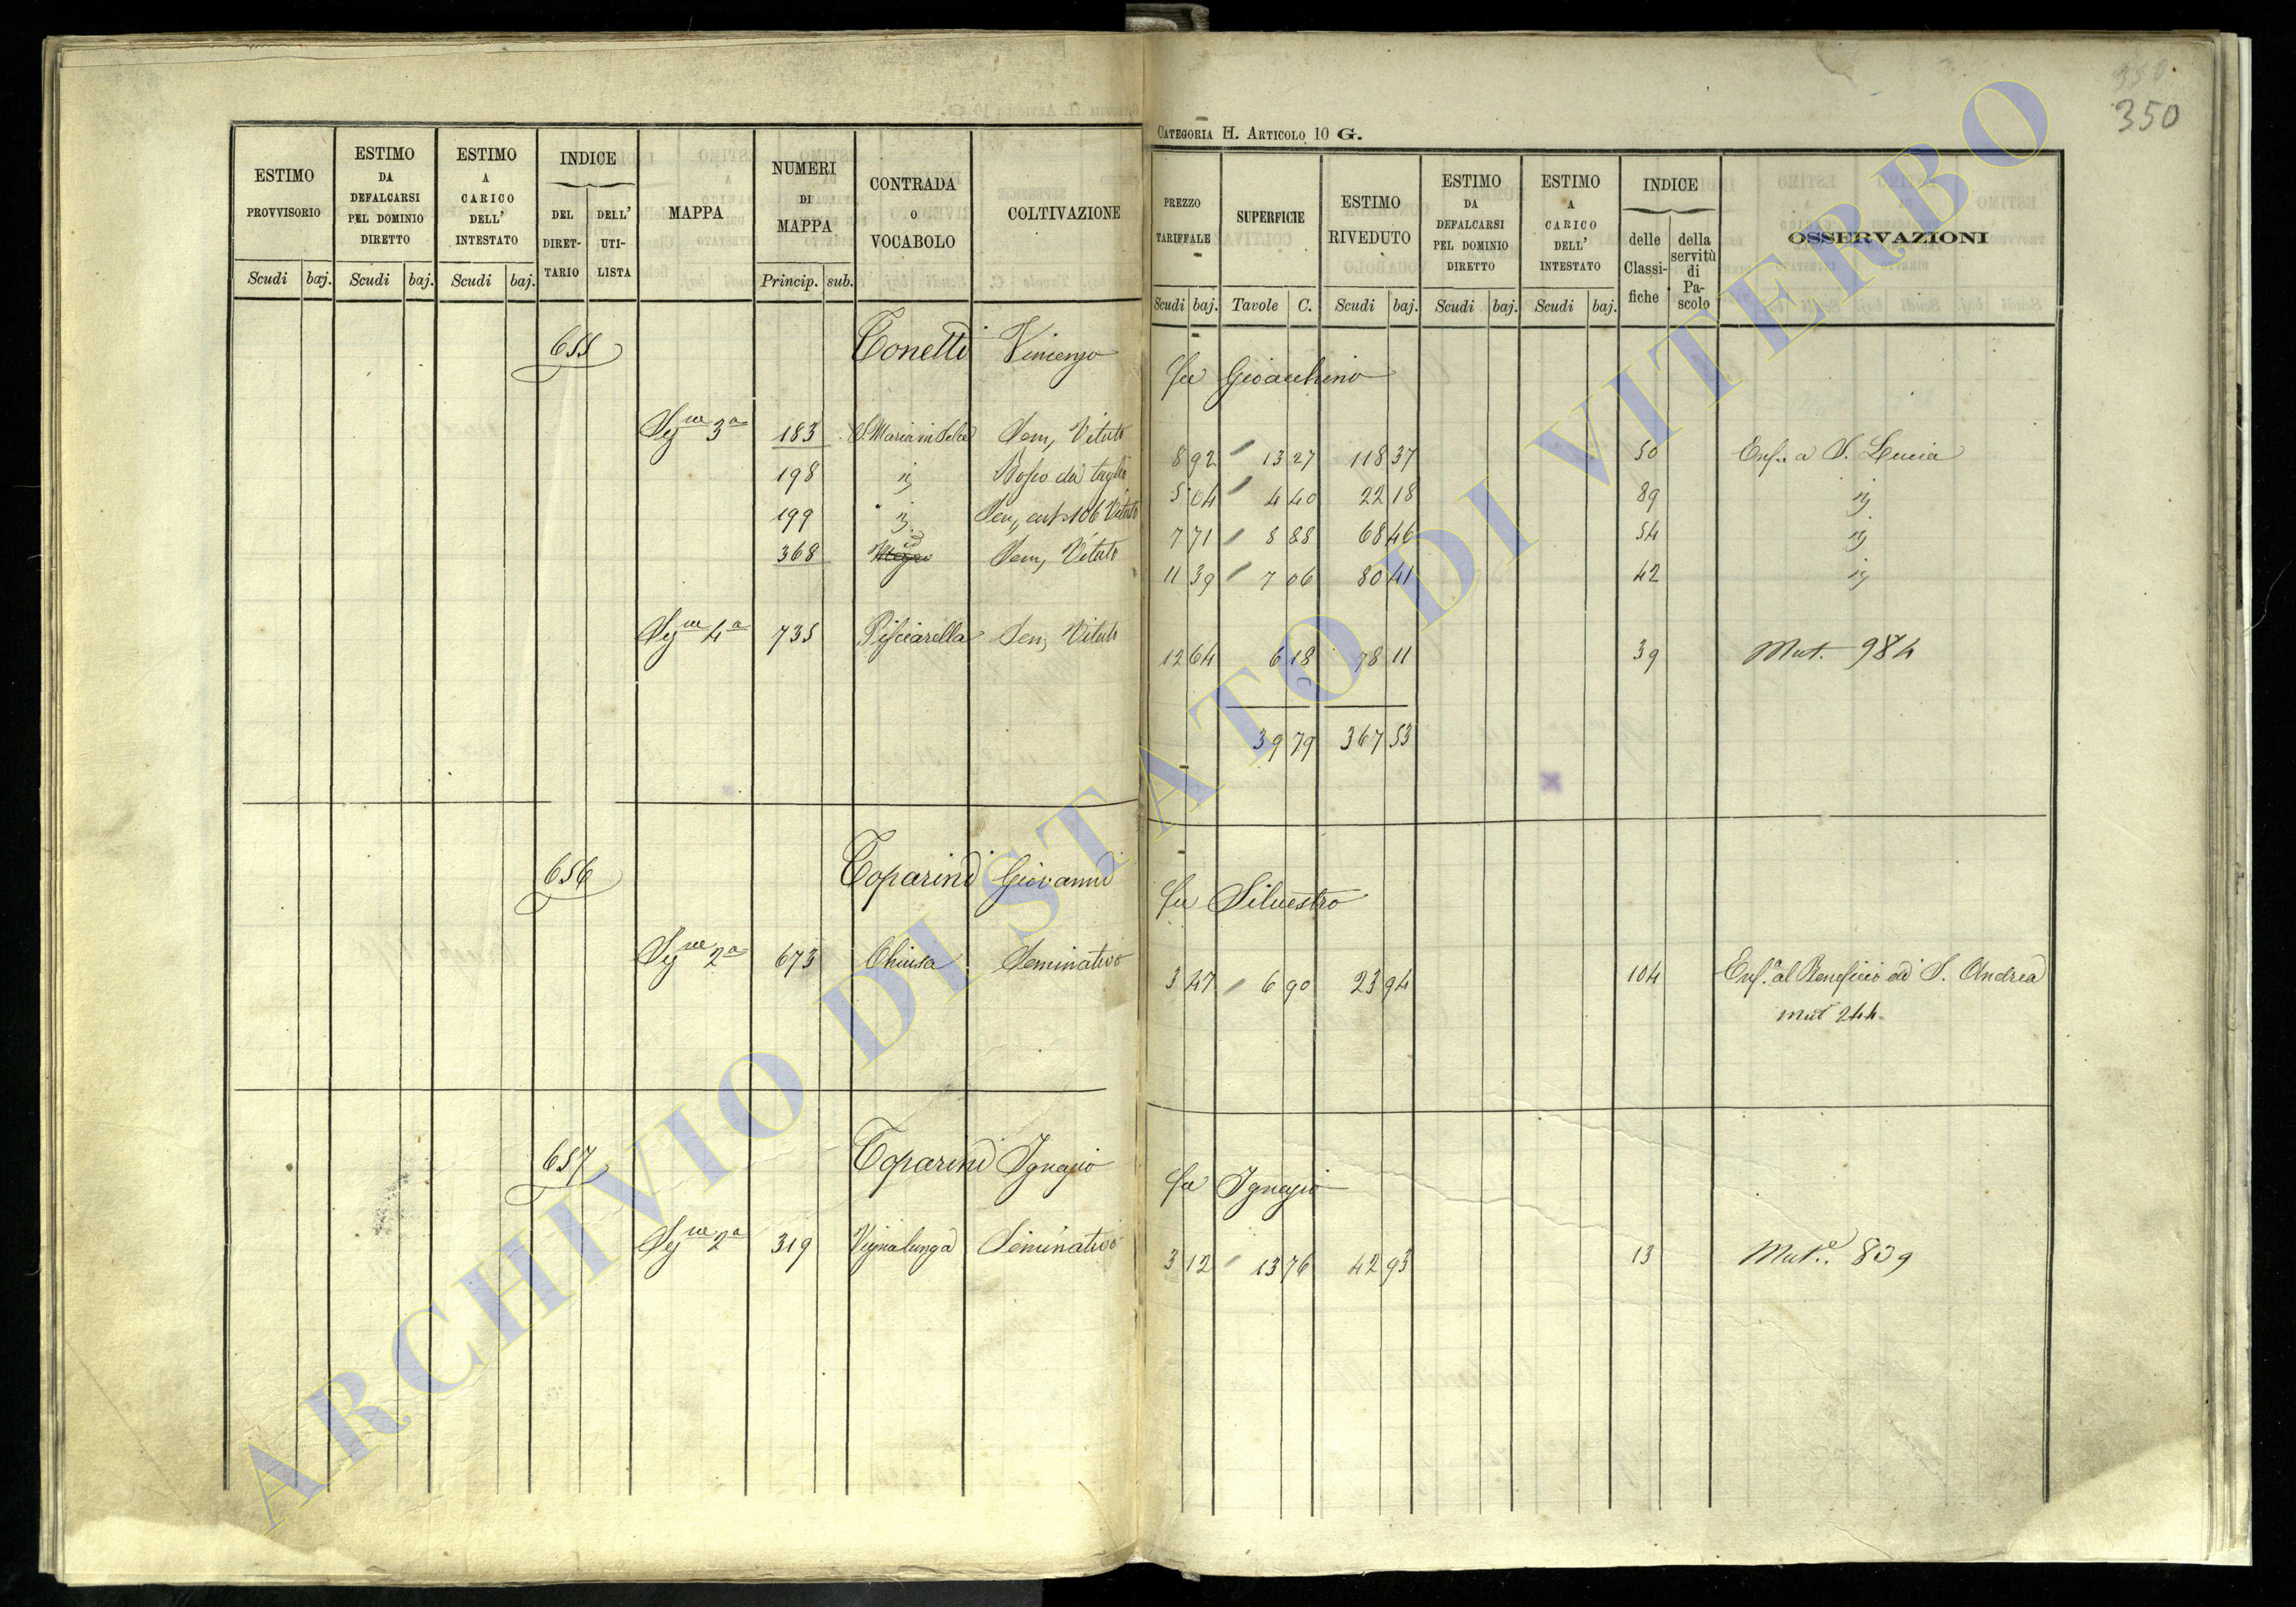 350
CATEGORIA H. ARTICOLO 10 G.
ESTIMO PROVVISORIO Scudi baj.
ESTIMO DA DEFALCARSI PEL DOMINIO DIRETTO Scudi baj.
ESTIMO A CARICO DELL' INTESTATO Scudi baj.
INDICE DEL DIRET-TARIO DELL' UTI-LISTA
MAPPA
NUMERI DI MAPPA Princip. sub.
CONTRADA O VOCABOLO
COLTIVAZIONE
PREZZO TARIFFALE Scudi baj.
SUPERFICIE Tavole C.
ESTIMO RIVEDUTO Scudi baj.
ESTIMO DA DEFALCARSI PEL DOMINIO DIRETTO Scudi baj.
ESTIMO A CARICO DELL' INTESTATO Scudi baj.
INDICE delle Classi-fiche della servitù di Pa-scolo
OSSERVAZIONI
655 Tonetti Vincenzo fu Gioacchino
Sez.ne 3a 183 S. Maria in Selce Sem, Vitato 8 92 13 27 118 37 50 Enf.. a S. Lucia
198 Bosco da taglio 5 04 4 40 22 18 89
199 Sem, Vitato 7 71 8 88 68 46 54
368 Sem, Vitato 11 39 7 06 80 41 42
Sez.ne 4a 735 Pisciarella Sem, Vitato 12 64 6 18 78 11 39 Mut. 984
39 79 367 53
656 Toparini Giovanni fu Silvestro
Sez.ne 2a 673 Chiusa Seminativo 3 47 6 90 23 94 104 Enf.a al Beneficio di S. Andrea
mut 244
657 Toparini Ignazio fu Ignazio
Sez.ne 2a 319 Vignalunga Seminativo 3 12 13 76 42 93 13 Mut.e. 839
ARCHIVIO DI STATO DI VITERBO